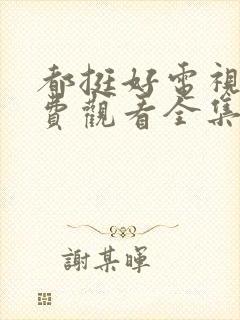 都挺好電視
費觀看全集
謝某暉